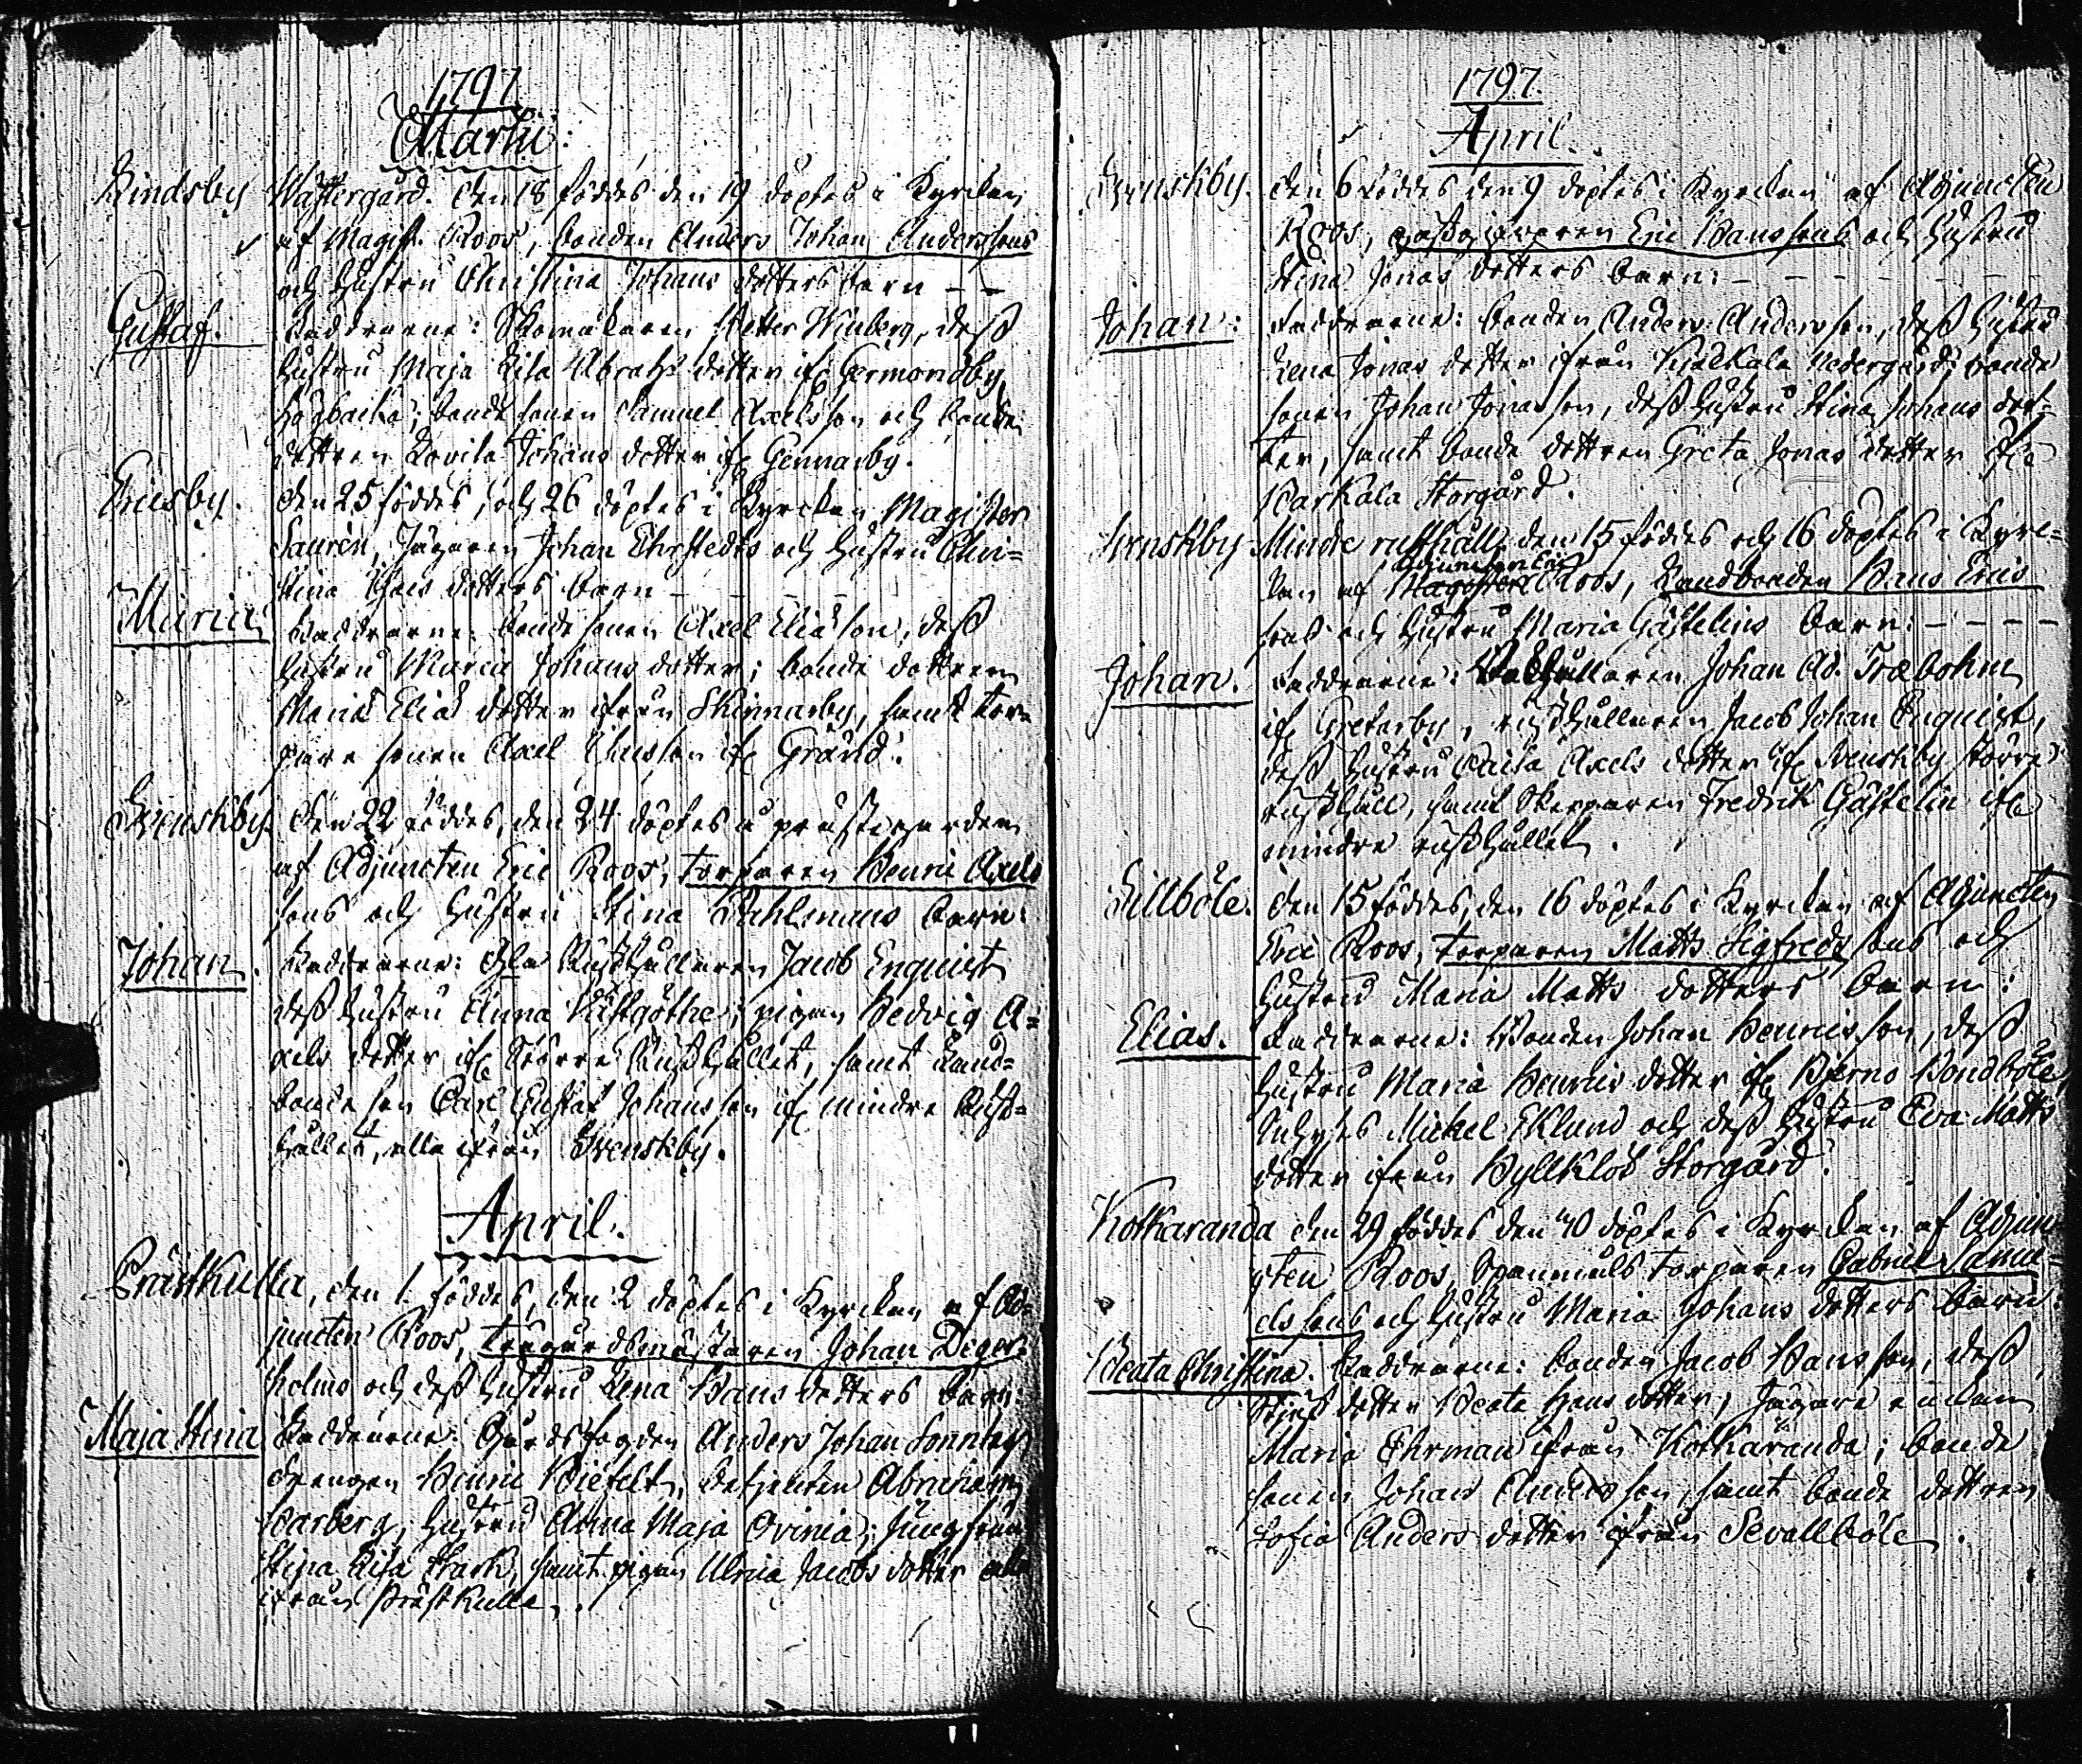 1797
Martii:
Lindsby Wästergård. den 18 föddes den 19 döptes i Kyrckan
af Magist. Roos, bonden Anders Johan Anderssons
och hustru Christina Johans dotters barn – –
Gustaf. Faddrarne: Skomakaren Petter Winberg, dess
hustru Maja Lisa Abrahs dotter ifr Germondby
Högbacka; bonde sonen Samuel Axelsson och bonde
dottren Lovisa Johans dotter ifr Gennarby.
Ericsby. den 25 föddes, och 26 döptes i Kyrckan Magister
Saurén, Jägaren Johan Ehrstedts och hustru Chri=
stina dotters barn –
Maria. Faddrarne: bonde sonen Axel Eliæ son, dess
hustru Maria Johans dotter; bonde dottren
Maria Eliæ dotter ifrån Skinnarby, samt tor=
pare sonen Axel ifr Gränd.
Svenskby. den 22 föddes, den 24 döptes i prästegården
af Adjuncten Eric Roos, torparen Henric Axels
sons och hustru Stina Dahlmans barn:
Johan. Faddrarne: Rusthållaren Jacob Enquist
dess hustru Anna Wästgöthe; pigan Hedvig A=
xels dotter ifr Större Rusthållet, samt Land=
bonde son Carl Gustaf Johansson ifr mindre Rust=
hållet, alla ifrån Svenskby.
April.
Prästkulla, den 1. föddes, den 2 döptes i Kyrckan af Ad=
juncten Roos, trägårdsmästaren Johan Deger=
holms och dess hustru Lena Hans dotters barn:
Maja Stina Faddrarne: Gårdsfogden Anders Johan
drengen Henric betjenten Abraham
Warberg, hustru Anna Maja Jungfrun
Stina Lisa samt pigan Ulrica Jacobs dotter alla
ifrån Prästkulla.
1797.
April.
Svenskby. den 6 föddes den 9 döptes i Kyrckan af Adjuncten
Roos, gästgifvaren Eric Hanssons och hustru
Stina Jonas dotters barn: – – – –
Johan: Faddrarne: bonden Anders Andersson, dess hustru
Lena Jonas dotter ifrån Kuskala Nedergård; bonde
sonen Johan Jonasson, dess hustru Stina Johans dot=
ter, samt bonde dottren Greta Jonas dotter ifr
Karkala Storgård.
Svenskby Mindre rusthåll den 15 föddes och 16 döptes i Kyrc=
Adjuncten Eric
kan af Magistern Roos, Landbonden Hans Erics
sons och hustru Maria Gästelins barn: – – – –
Johan. Faddrarne: Johan Ad. Træbohm
ifr Gretarby, rusthållaren Jacob Johan Enquist,
dess hustru Caisa Axels dotter ifr Svenskby större
rusthåll, samt Skepparen Fredrik Gästelin ifr
mindre rusthållet.
Lillböle. den 15 föddes, den 16 döptes i Kyrckan af Adjuncten
Eric Roos, torparen Matts Sigfreds sons och
hustru Maria Matts dotters barn:
Elias. Faddrarne: Bonden Johan Henricsson, dess
hustru Maria Henrics dotter ifr Bjerno Bondböle,
Inhyses Michel Eklund och dess hustru Eva Matts
dotter ifrån Storgård.
Kotkaranda den 29 föddes den 30 döptes i Kyrckan af Adjun=
cten Roos, Spanmåls torparen Gabriel Samu=
els sons och hustru Maria Johans dotters barn:
Beata Christina. Faddrarne: bonden Jacob Hansson, dess
Stjuf dotter Beata Hans dotter, Jägare enkan
Maria Ehrman ifrån Kotkaranda; bonde
sonen Johan Andersson, samt bonde dottren
Sofia Anders dotter ifrån Sevallböle.